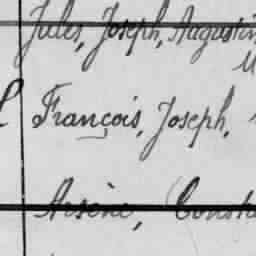 Jules, Joseph, Augustin
François, Joseph,
Arsène,